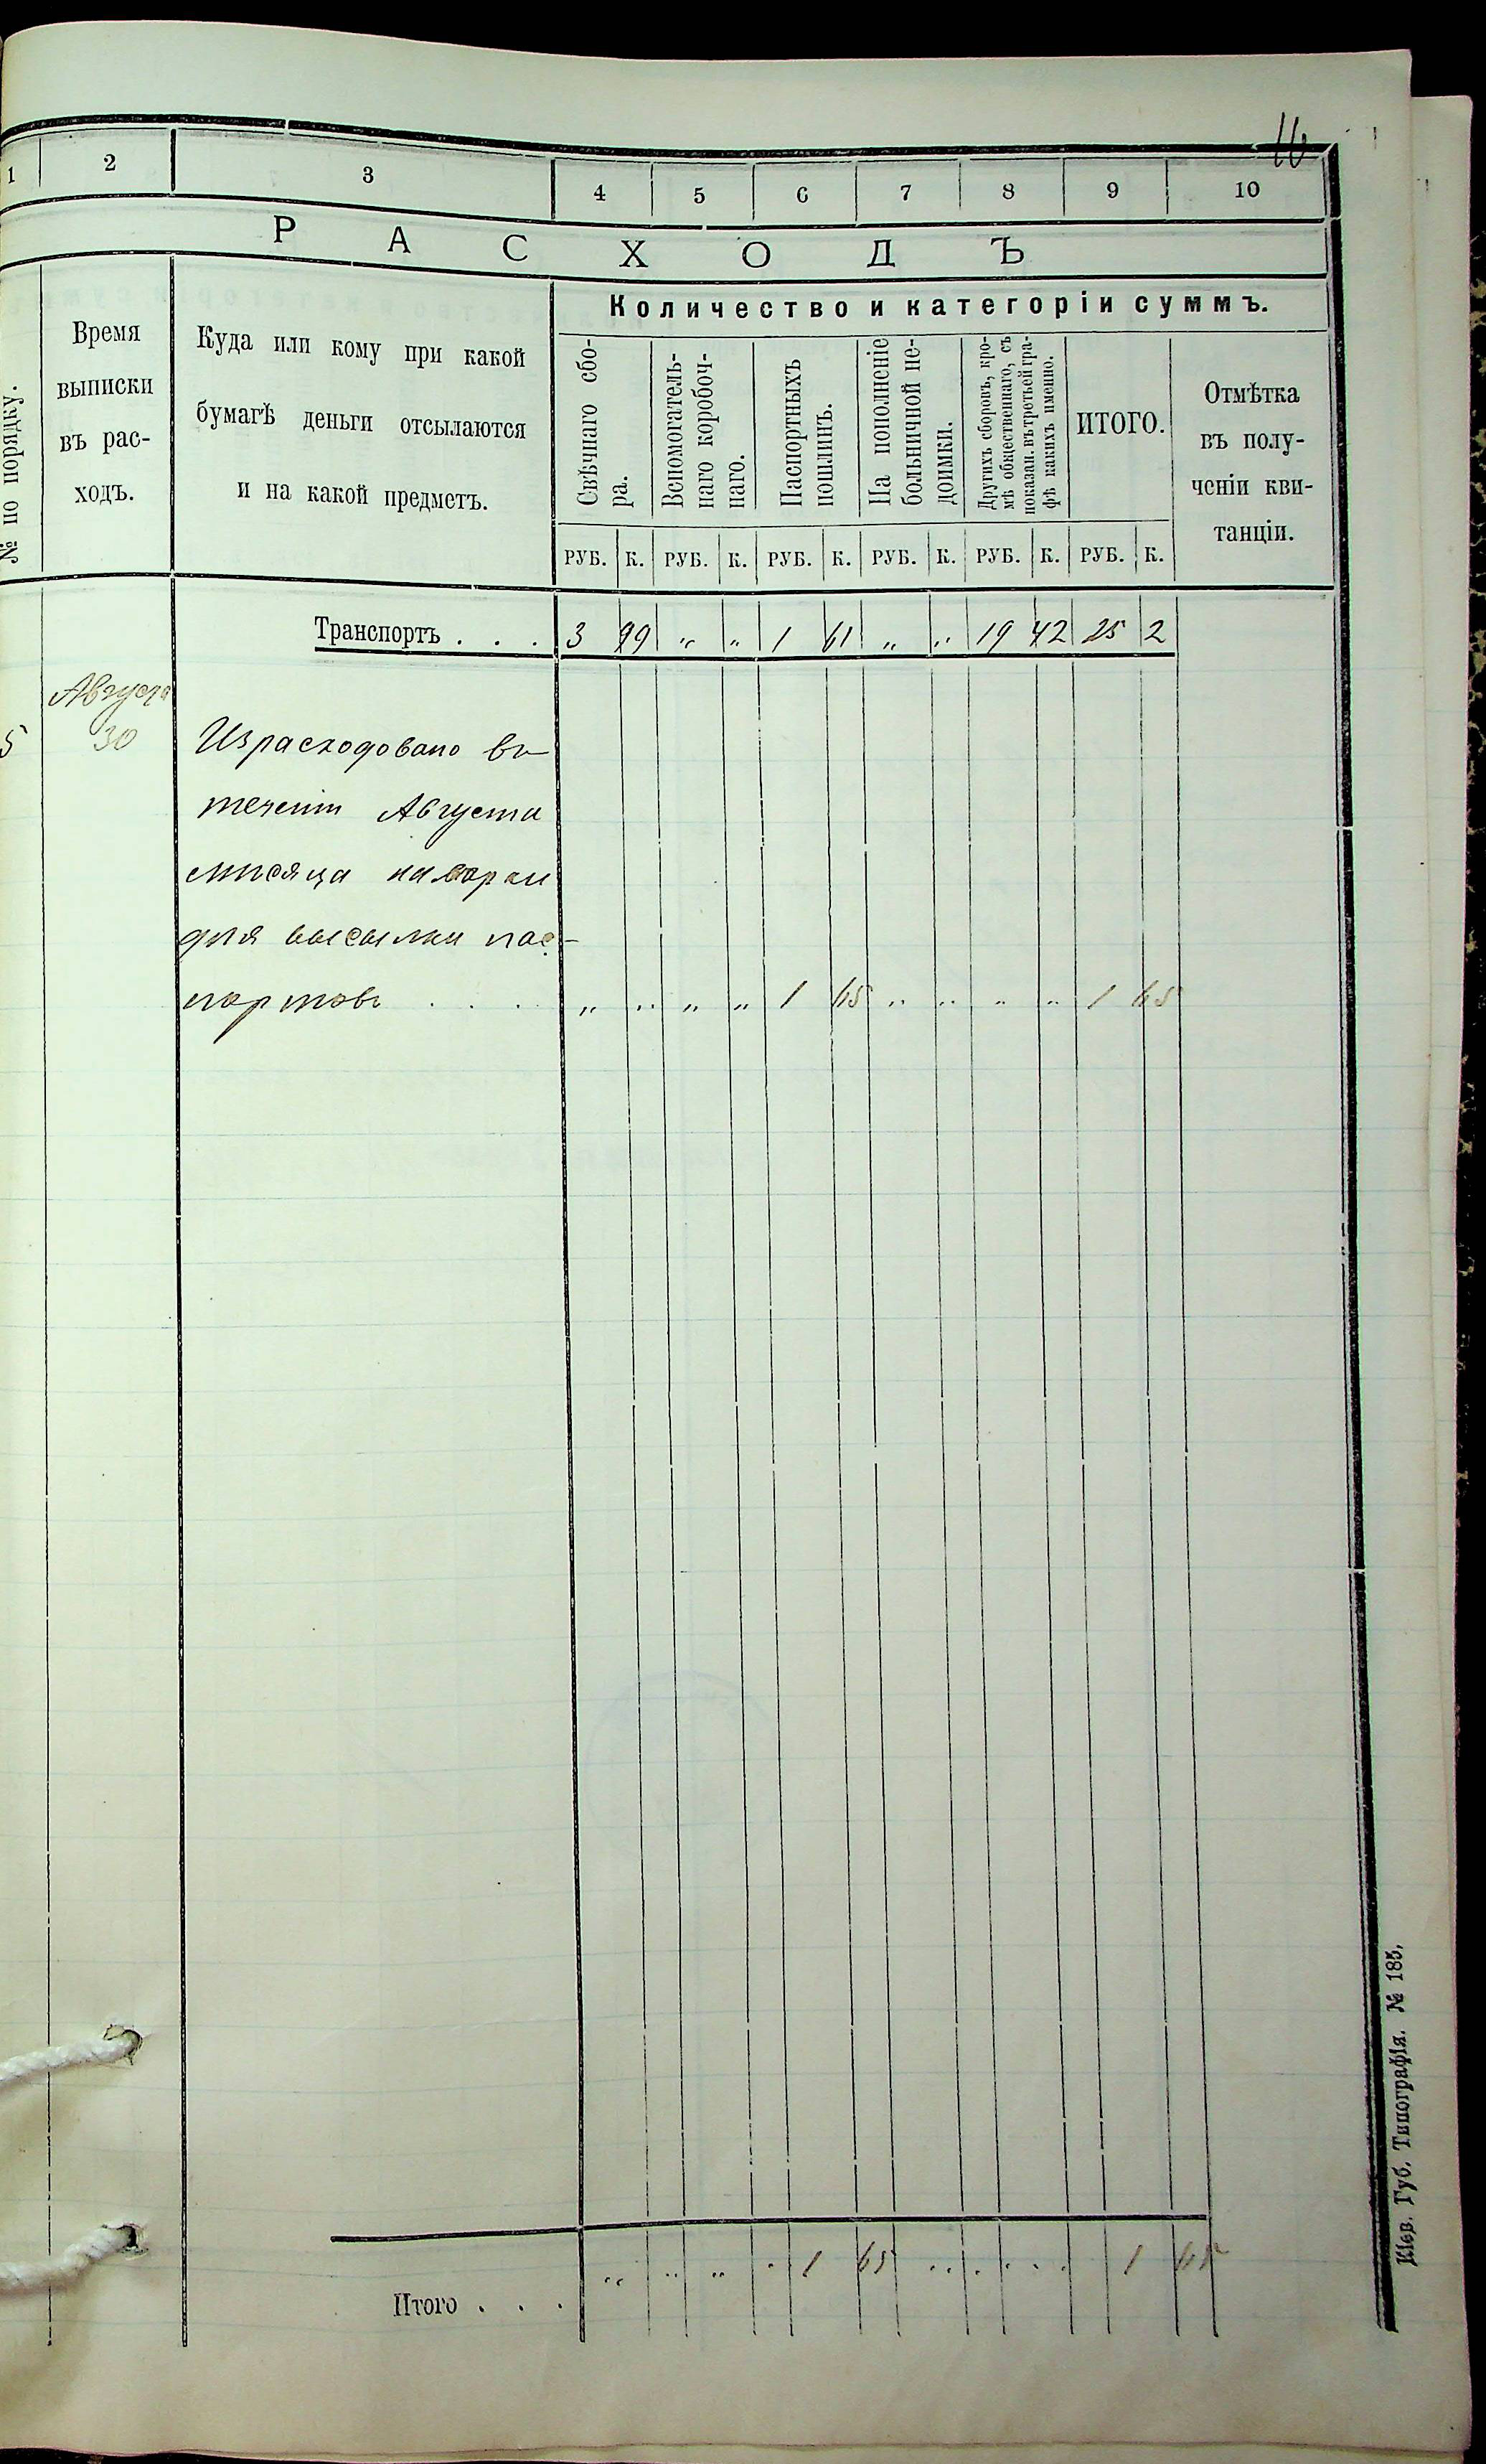 16
1 2 3 4 5 6 7 8 9 10
Р А С Х О Д Ъ
№ по порядку.
Время
выписки
въ рас-
ходъ.
Куда или кому при какой
бумагѣ деньги отсылаются
и на какой предметъ.
Количество и категоріи суммъ.
Свѣчнаго сбо-
ра.
Вспомогатель-
наго коробоч-
наго.
Паспортныхъ
пошлинъ.
На пополненіе
больничной не-
доимки.
Другихъ сборовъ, кро-
мѣ общественнаго, съ
показан. въ третьей гра-
фѣ какихъ именно.
ИТОГО.
Отмѣтка
въ полу-
ченіи кви-
танціи.
РУБ. К. РУБ. К. РУБ. К. РУБ. К. РУБ. К. РУБ. К.
Транспортъ . . . 3 99 „ „ 1 61 „ „ 19 42 25 2
Августа
5 30 Израсходовано въ
теченіи Августа
мѣсяца на марки
для высылки пас-
портовъ . . . „ „ „ „ 1 65 „ „ „ „ 1 65
Итого . . . „ „ „ „ 1 65 „ „ „ „ 1 65
Кіев. Губ. Типографія. № 185.